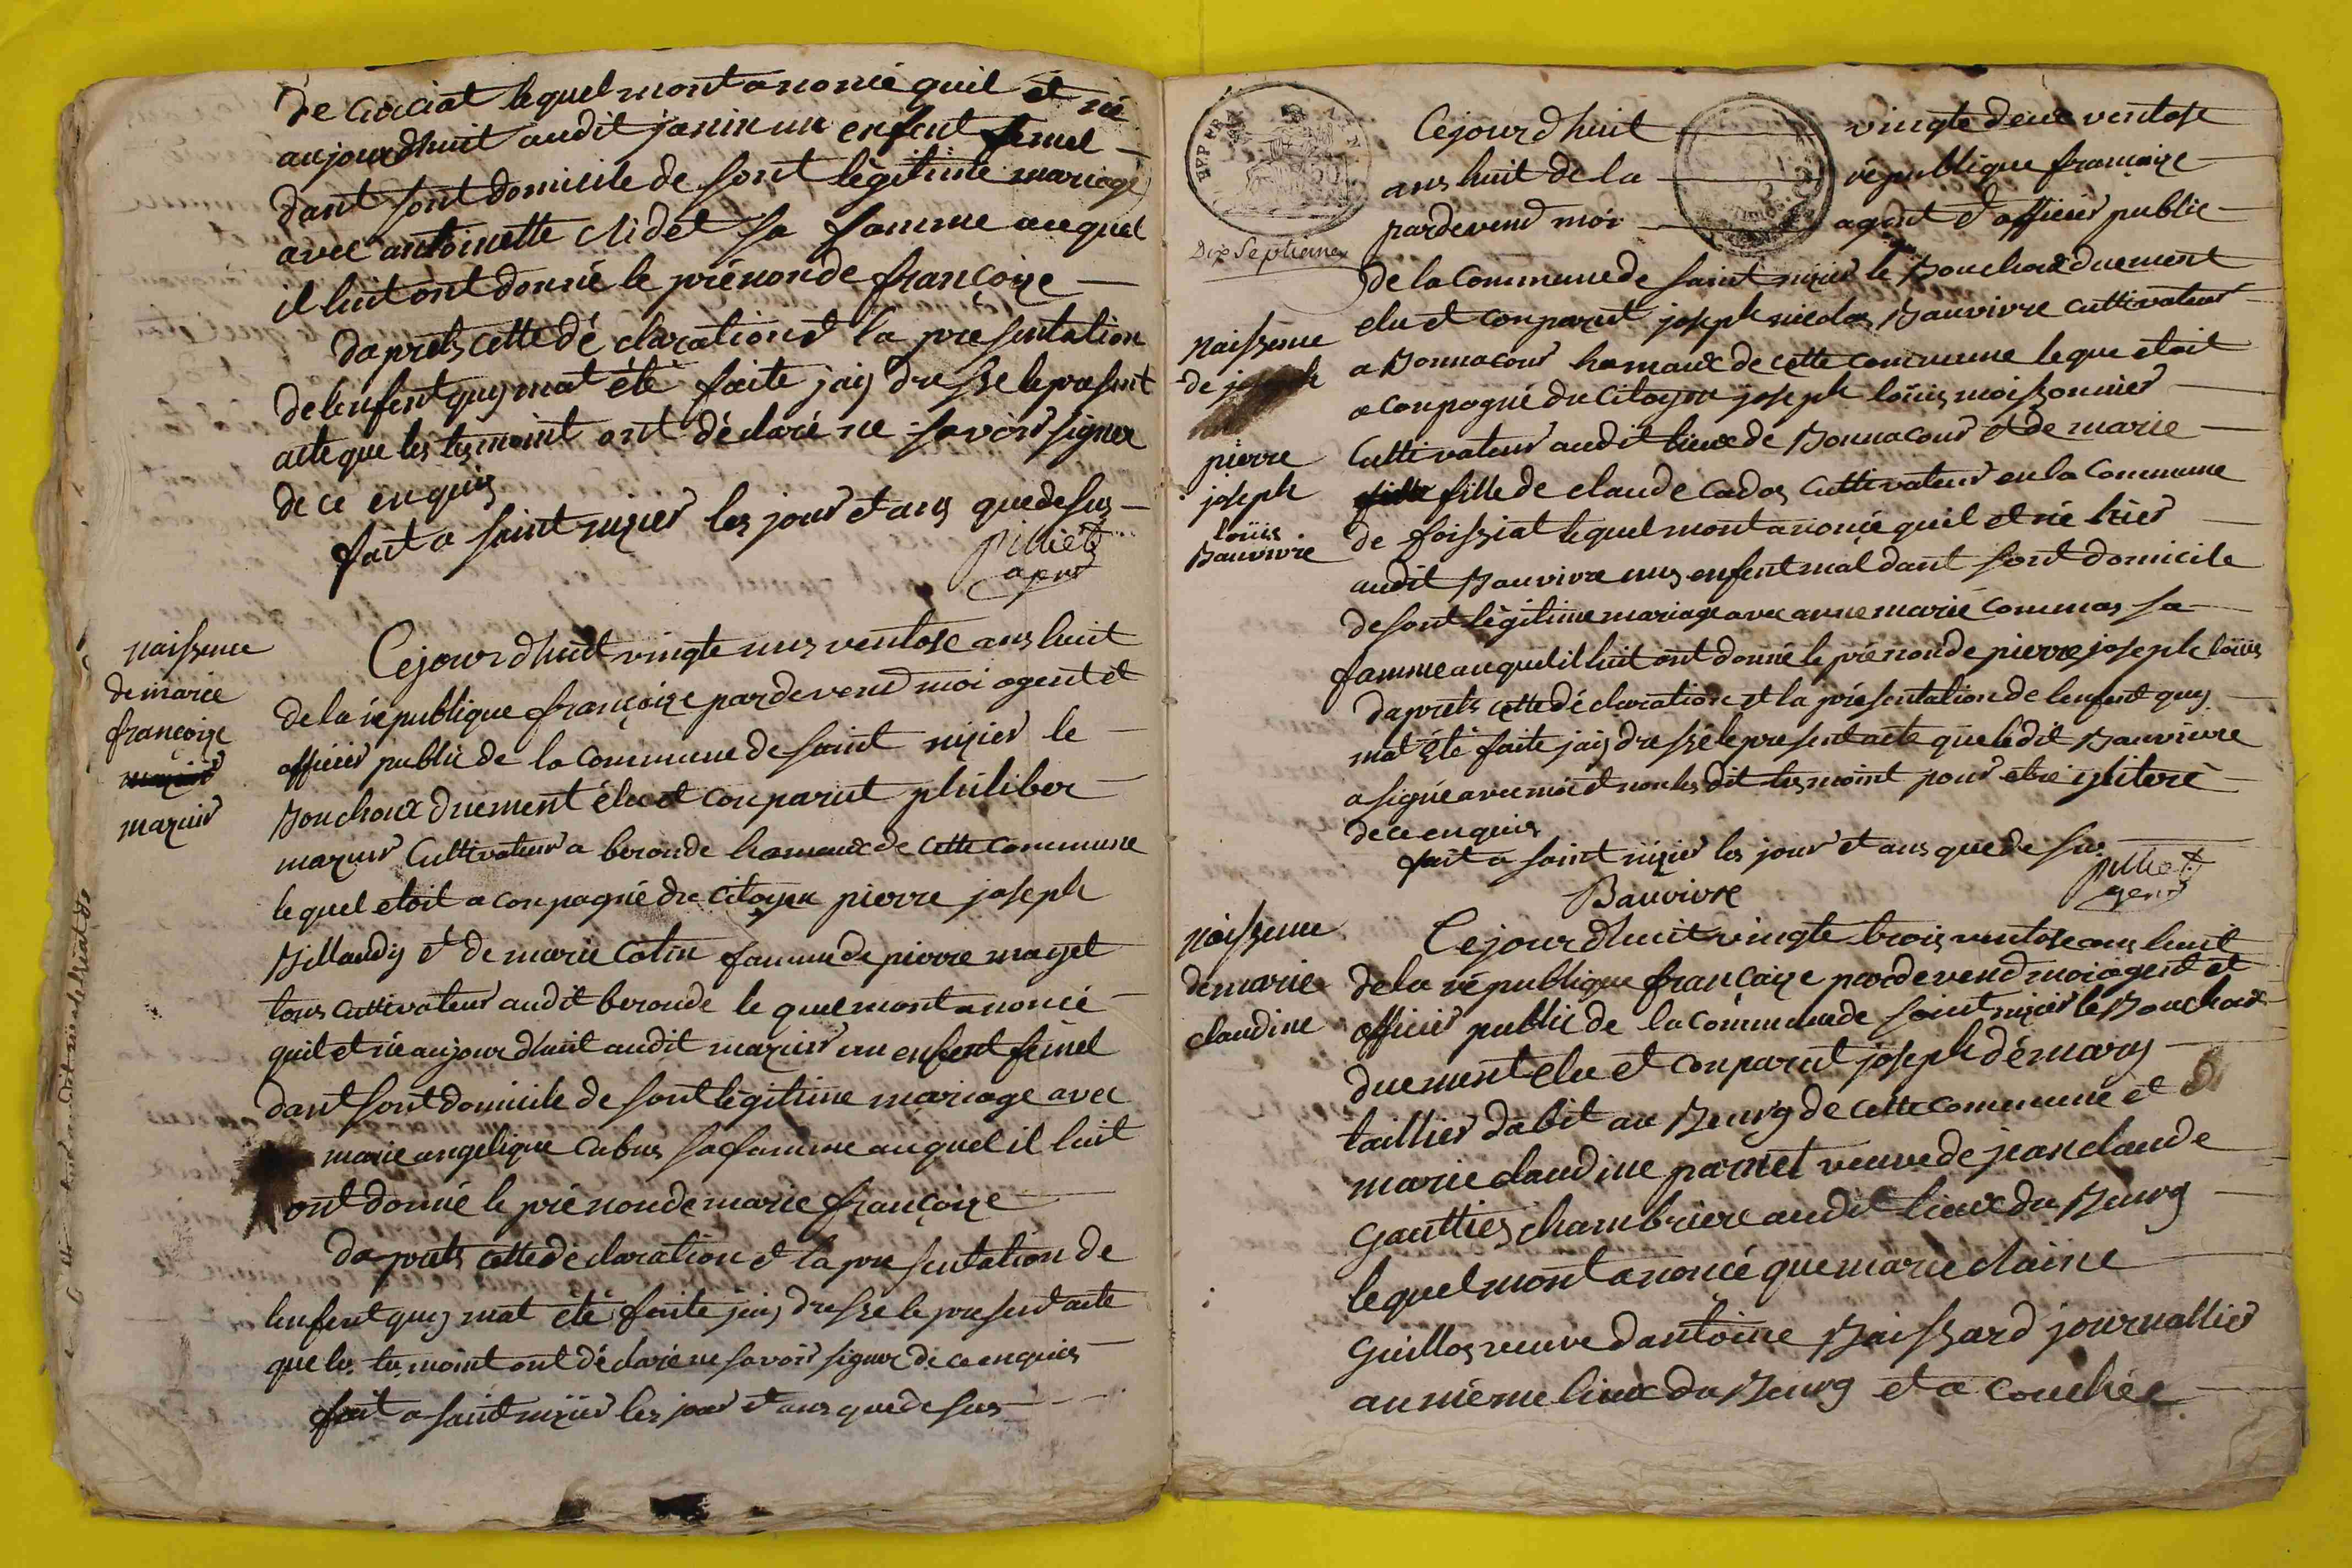 de cruciat lequel mont anoncé quil et né
aujourdhuit audit janin un enfent femel
dant sont domicile de sont légitime mariage
avec antoinette clidet sa famme auquel
il luit ont donné le prénon de françoise
daprets cette dé claration et la presentation
de lenfent quy mat été faite jaiy dresse le present
acte que les tesmoint ont déclaré ne savoir signer
de ce enquis
fait a saint nizier les jour et ans que desus
pilliet
agent
naissence
de marie
françoise
mazuir
Cejourdhuit vingte uns ventose ans huit
de la république françoize pardevend moi agent et
officier public de la commune de saint nizier le
Bouchoux duement élu et conparut philiber
mazuir Cultivateur a beronde hamaux de cette commune
lequel etoit a conpagné du Citoyen pierre joseph
Billandy et de marie Colin famme de pierre mayet
tous cultivateur audit beronde le quel mont anoncé
quil et né aujourdhuit audit mazuir un enfent femel
dant sont domicile de sont legitime mariage avec
marie angelique Cabus sa famme auquel il luit
ont donné le pré non de marie françoize
da prets cette dé claration et la pre sentation de
lenfent quy mat été faite jaiy dresse le present acte
que les tesmoint ont déclaré ne savoir signer de ce enquis
fait a saint nizier les jour et ans que de sus
REP FRA
Dix Septieme
Cejourdhuit vingte deux ventose
ans huit de la république francaize
pardevend moi agent et officier public
de la Commune de saint nizier le Bouchoux duement
elu et conparut joseph nicolas Bauvivre cultivateur
a Bonnacour hamaux de cette commune leque etoit
a conpagné du Citoyen joseph loüis moissonnier
Cultivateur audit lieux de Bonnacour et de marie
fille de claude cados Cultivateur en la Commune
de foissiat lequel mont anoncé quil et né hier
audit Bauvivre uns enfent mal dant sont domicile
de sont légitime mariage avec anne marie Commas sa
famme auquel il luit ont donné le pré non de pierre joseph loüis
daprets cette dé claration et la présentation de lenfent quy
mat été faite jaiy dressé le present acte que le dit Bauvivre
a signé avec moi et non les dit tesmoint pour etre ilitere
de ce enquis
fait a saint nizier les jour et ans que de sus
Bauvivre pilliet
agent
naissence
de joseph
pierre
joseph
loüis
Bauvivre
naissence
de marie
claudine
Cejourdhuit vingte trois ventose ans huit
de la république françaize pardevend moi agent et
officier public de la commune de saint nizier le Bouchoux
duement elu et conparut joseph démary
taillier dabit au Bourg de cette commune et
marie claudine parnet veuve de jean claude
Gauttier chambriere audit lieux du Bourg
lequel mont anoncé que marie claine
Guillos veuve dantoine Baissard journallier
au même lieux du Bourg et a couchée